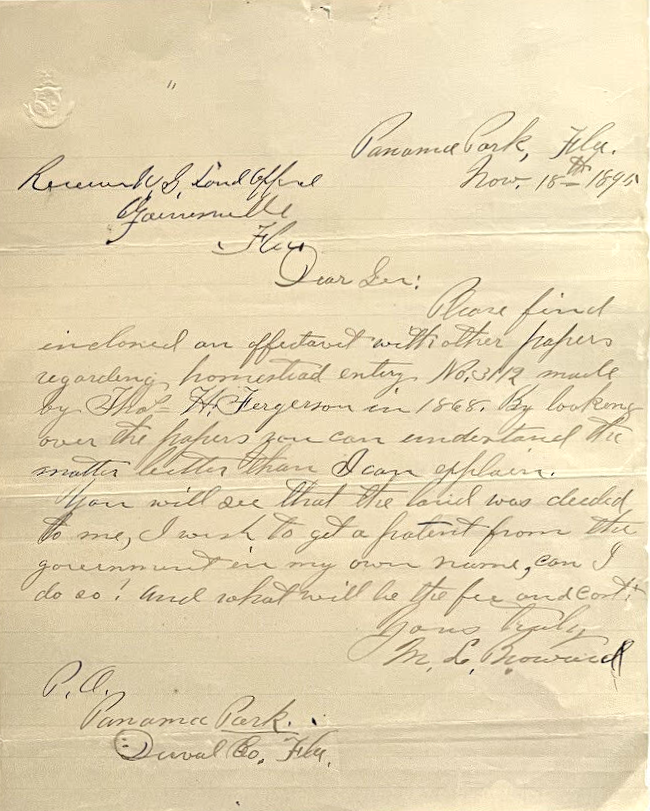 Panama Park, Fla.
Nov. 18th 1895
Receiver U, S, Land Office
Gainesville
Fla.
Dear Sir:
Please find
inclosed an affetavit with other papers
regarding homestead entry No. 3112 made
by Thos H. Fergerson in 1868. By looking
over the papers you can understand the
matter better than I can explain.
You will see that the land was deeded
to me, I wish to get a patent from the
government in my own name, can I
do so! And what will be the fee and cost!
Yours truly
M. L. Broward
P. O.
Panama Park.
Duval Co. Fla.